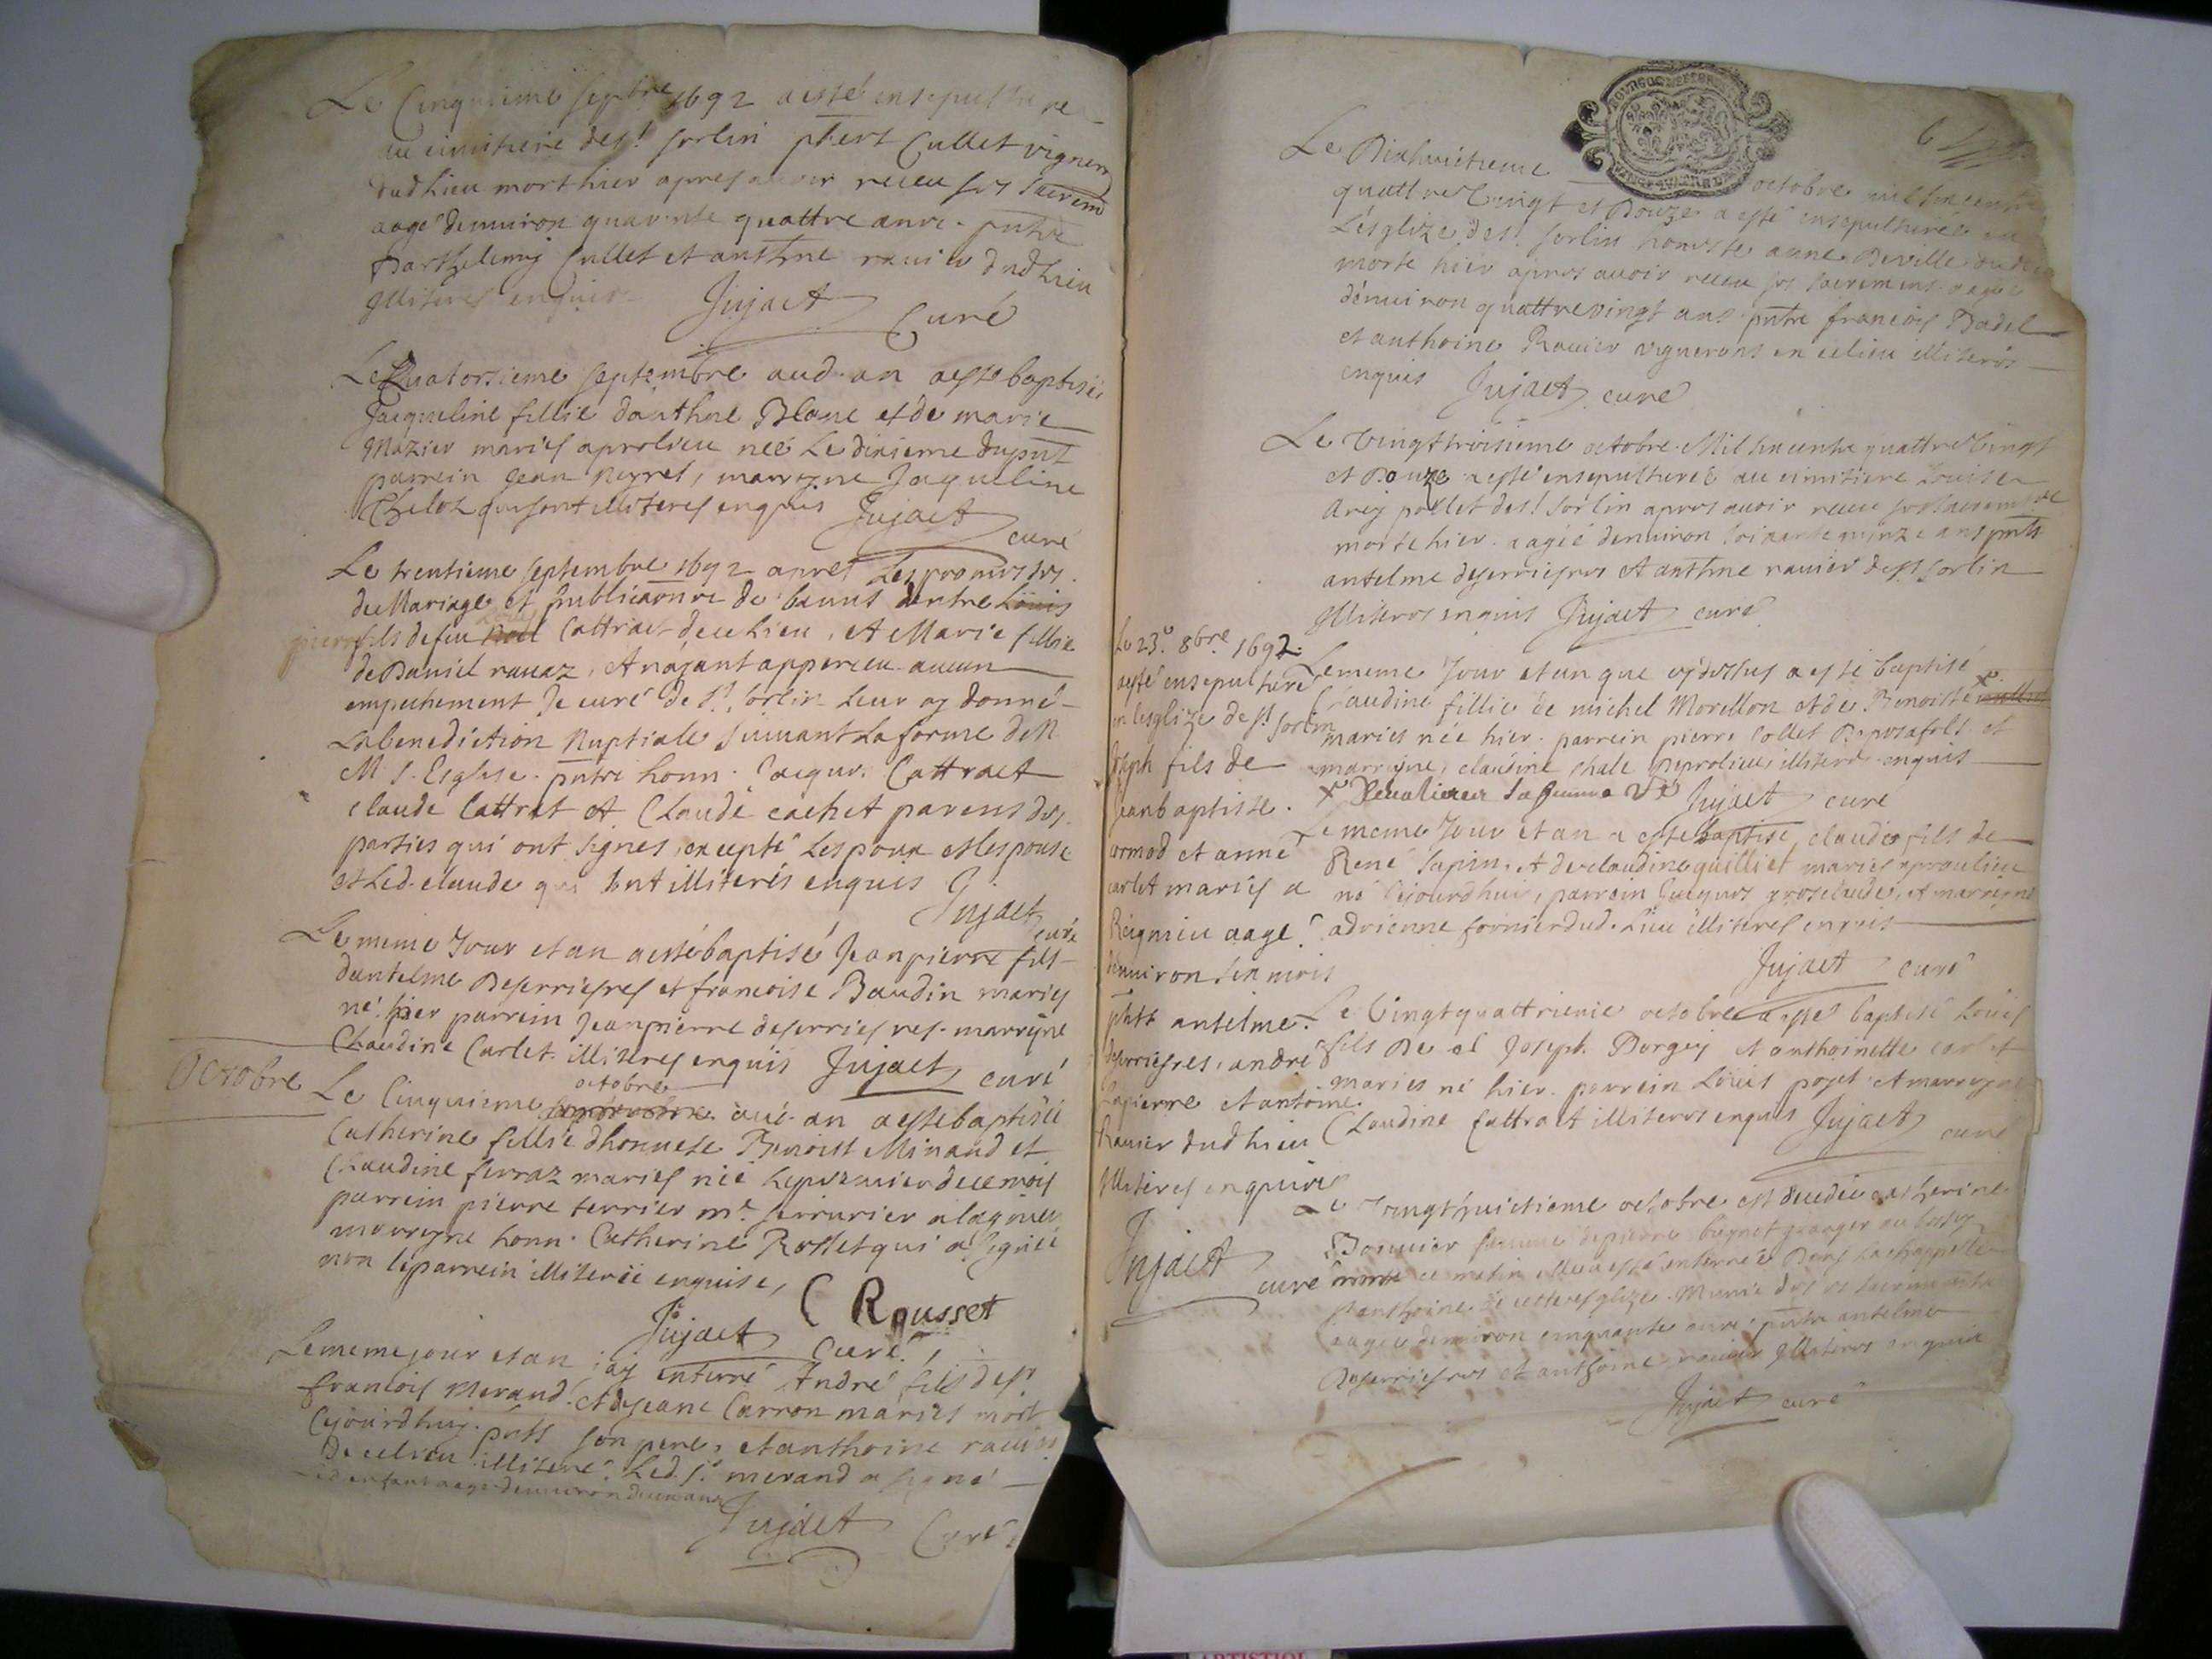 Le Cinquieme septbre 1692 a esté ensepulture
au cimitiere de st sorlin phert Cullet vigneron
dudt lieu mort hier apres avoir receu ses sacrem
aagé denuiron quarante quattre ans. pntre
Barthelemy Cullet et anthne rauier dudt lieu
Illiteres enquis Jujact Curé
Le Quatorsieme septembre aud. an a esté baptisée
Jacqueline fillie danthne Blanc et de marie
Mazier mariés aprolieu neé Le dixieme dupnt
parrein Jean Neyret, marryne Jaqueline
qui sont illiteres enquis Jujact
curé
Le trentieme septembre 1692 apres Les promesses
de Mariage et publicaonne de banns dentre Louis
pierre fils de feu Cattract de ce lieu, et Marie fillie
de Daniel rauaz, et nayant apperceu aucun
empechement Je curé de St. sorlin Leur ay donné
La benediction Nuptiale suiuant La forme de N
M S. Esglise. pntre honn. Jacque. Cattract
claude Cattret et Claude cachet parens des
parties qui ont signes, excepté Lespoux et lespouse
et Led. claude qui sont illiterés enquis Jujact
curé
Le meme Jour et an a esté baptisé Jean pierre fils
dantelme Deserriesres et francoise Baudin mariés
né hier parrein Jean pierre deserriesres. marryne
Claudine Carlet. illiteres enquis Jujact curé
Octobre
octobre
Le Cinquieme aud. an a esté baptisée
Catherine fillie dhonneste Benoist Minand et
Claudine ferraz mariés neé Le premier de ce mois
parrein pierre terrier mre. serrurier a lagnieu
marryne honn. Catherine Rosset qui a signée
non le parrein illiteré enquise,
C Rousset
Jujact Curé
Le meme jour et an jay enterré André fils de sr
francois Merand. et de Jeane Carron mariés mort
Cejourdhuy. pnts son pere, et anthoine rauier
de ce lieu illiteré. Led. sr. merand a signé
Led enfant aagé denuiron deux ans
Jujact Curé
Le Dixhuictieme octobre mil six cents
quattre Vingt et Douze a esté ensepulturée en
Lesglize de st. sorlin honeste anne Deville dudt
morte hier apres auoir receu ses sacremens aagée
denuiron quattre vingt ans pntre francois Badel
et anthoine Rauier vignerons en ce lieu illiterés
enquis Jujact curé
Le Vingt troisieme octobre Mil six cents quattre Vingt
et Douze a esté ensepulturée au cimitiere Louise
Arey pollet de st. sorlin apres auoir receu ses sacrem
morte hier. aagée denuiron soixante quinze ans pnts
antelme deserriesres et anthne rauier de st sorlin
Illiteres enquis Jujact curé
Le 23e. 8bre. 1692.
a esté ensepulturé
en lesglize de st sorlin
Joseph fils de
Jean baptiste
cormod et anne
carlet mariés a
Reignieu aagé
denuiron six mois
pnts antelme
deserriesres, andré
Lapierre et antoine
Rauier dudt lieu
Illiteres enquis
Jujact
curé
Le meme Jour et an que cy dessus a esté baptisé
Claudine fillie de michel Morellon et de Benoiste x
mariés née hier. parrein pierre Collet et
marryne, claudine chale illiteres enquis
x Jujact curé
Le meme Jour et an a esté baptisé claude fils de
René Sapin, et de claudine quilliet mariés aproulieu
né Cejourdhuy, parrein Jacques et marryne
adrienne fornier dud. Lieu illiteres enquis
Jujact curé
Le Vingt quattrieme octobre a esté baptisé Louis
fils De Joseph. Borgey et anthoinette carlet
mariés né hier. parrein Louis poget et marryne
Claudine Cattract illiteres enquis Jujact
curé
Le Vingt huictieme octobre est decedée catherine
Bouuier femme de pierre granger au
morte ce matin elle a esté enterrée Dans La chappelle
st anthoine de cette esglize. Munie des sts sacremens
aagée denuiron cinquante ans, pntre antelme
Deserriesres et anthoine rauier Illiteres enquis
Jujact curé